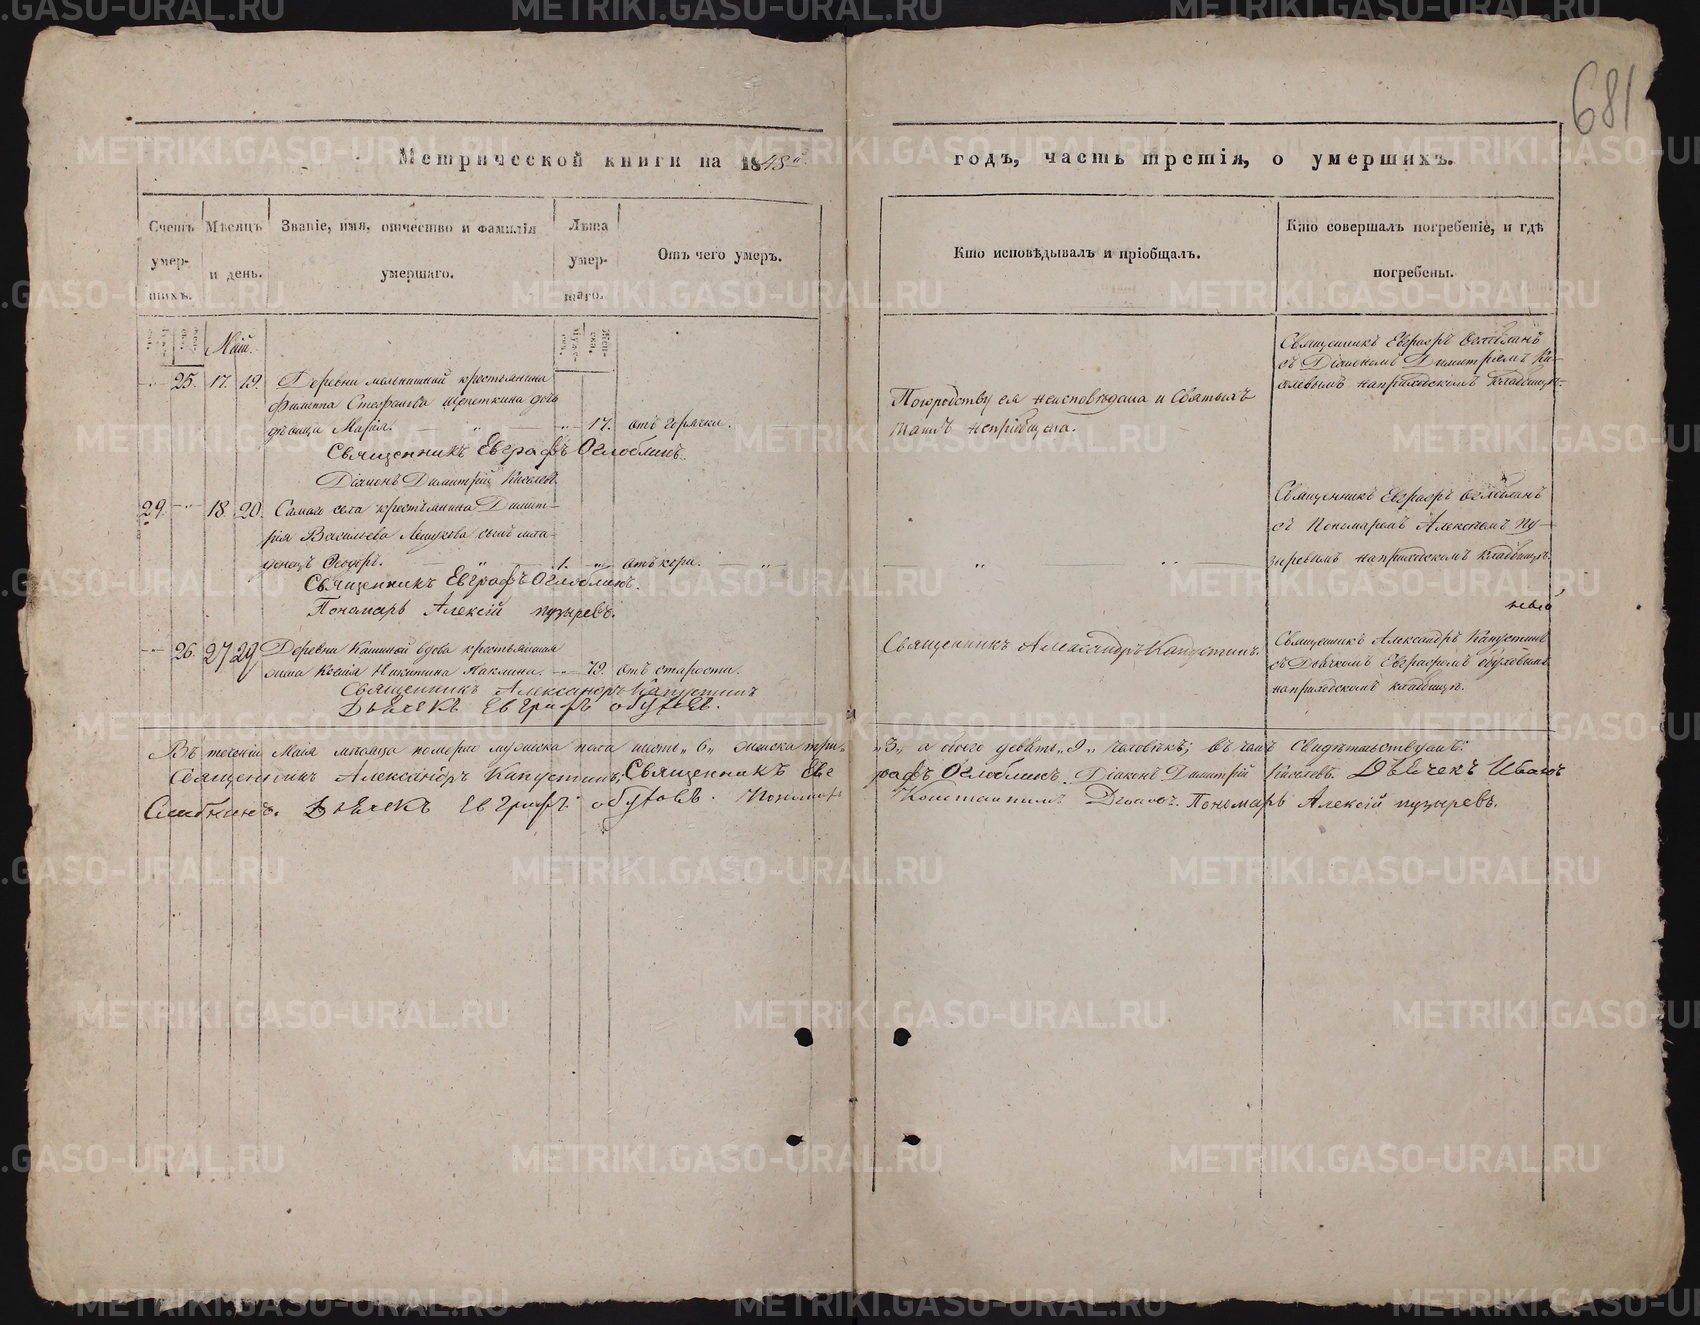 681
Метрической книги на 1848й годъ, часть третія, о умершихъ.
Счетъ умер-шихъ.
Мѣсяцъ и день.
Званіе, имя, отчество и фамилія умершаго.
Лѣта умер-шаго.
Отъ чего умеръ.
Кто исповѣдывалъ и пріобщалъ.
Кто совершалъ погребеніе, и гдѣ погребены.
Май.
25. 17. 19. Деревни мельнишной крестьянина
Филиппа Стефанова Щепеткина дочь
дѣвица Марія. 17. отъ горячки.
Священникъ Евграфъ Оглоблинъ.
Діаконъ Димитрій Киселевъ.
Поюродству ея неисповѣдана и Святыхъ
таинъ непріобщена.
Священникъ Евграфъ Оглоблинъ
съ Діакономъ Димитріемъ Ки-
селевымъ наприходскомъ кладбищѣ.
29. 18. 20. Самаго села крестьянина Димит-
рія Васильева сынъ мла-
денецъ Ѳеодоръ. 1. отъ кори.
Священникъ Евграфъ Оглоблинъ.
Пономарь Алексій пузыревъ.
Священникъ Евграфъ Оглоблинъ
съ Пономаремъ Алексѣемъ Пу-
зыревымъ наприходскомъ кладбищѣ.
26. 27 29 Деревни Кашиной вдова крестьянская
жена Ксенія Никитина Паклина. 79. отъ старости.
Священникъ Александръ Капустинъ
Дьячекъ Евграфъ обуховъ.
Священникъ Александръ Капустинъ.
Священникъ Александръ Капустинъ
съ Дьячкомъ Евграфомъ обуховымъ
наприходскомъ кладбищѣ.
Въ теченіи Маія мѣсяца померло мужеска пола шесть „6„ женска три „3„ а обоего девять „9„ человѣкъ; въ чемъ свидѣтельствуемъ:
Священникъ Александръ Капустинъ, Священникъ Евграфъ Оглоблинъ. Діаконъ Димитрій Киселевъ. Дьячекъ Иванъ
Дьячекъ Евграфъ обуховъ. Пономарь Константинъ Пономарь Алексій пузыревъ.